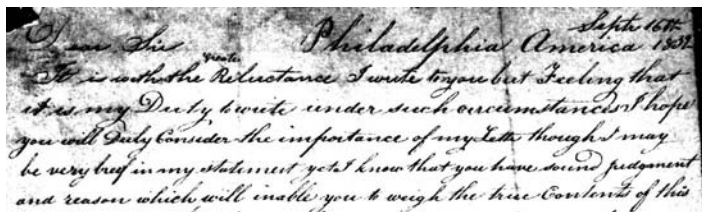 Septr 16th
Dear Sir Philadelphia America 1832
greater
It is with the Reluctance I write to you but Feeling that
it is my Duty to write under such circumstances I hope
you will Duly Consider the importance of my Letter though I may
be very breif in my statement yet I know that you have sound judgment
and reason which will inable you to weigh the true Contents of this